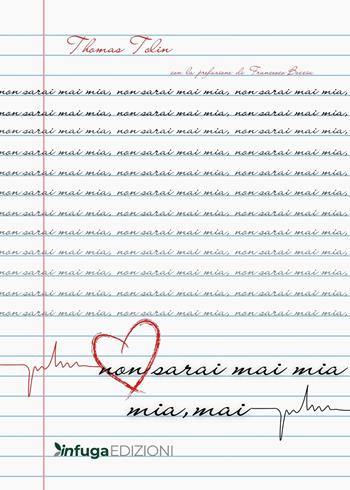 Thomas Tolin
con la prefazione di Francesco Boccia
non sarai mai mia, non sarai mai mia, non sarai mai mia,
non sarai mai mia, non sarai mai mia, non sarai mai mia,
non sarai mai mia, non sarai mai mia, non sarai mai mia,
non sarai mai mia, non sarai mai mia, non sarai mai mia,
non sarai mai mia, non sarai mai mia, non sarai mai mia,
non sarai mai mia, non sarai mai mia, non sarai mai mia,
non sarai mai mia, non sarai mai mia, non sarai mai mia,
non sarai mai mia, non sarai mai mia, non sarai mai mia,
non sarai mai mia, non sarai mai mia, non sarai mai mia,
non sarai mai mia, non sarai mai mia, non sarai mai mia,
non sarai mai mia, non sarai mai mia, non sarai mai mia,
non sarai mai mia
mia, mai
infugaEDIZIONI